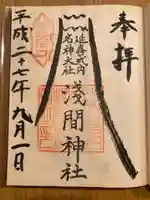 奉拝
延喜式内
名神大社
淺間神社
平成二十七年九月一日